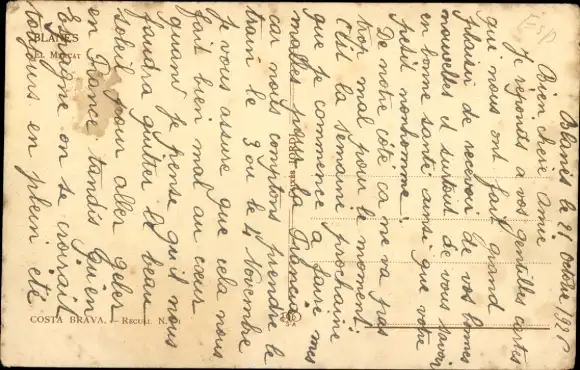 Blanès le 21 octobre 1928
Bien chère Amie
Je réponds a vos gentilles cartes
que nous ont fait grand
plaisir de recevoir de vos bonnes
nouvelles et surtout de vous savoir
en bonne santé ainsi que votre
petit nonhomme.
De notre côté ça ne va pas
trop mal pour le moment.
C'est la semaine prochaine
que je commence a faire mes
malles pour la France
car nous comptons prendre le
train le 3 ou le 4 Novembre
Je vous assure que cela nous
fait bien mal au cœur
quand je pense qu'il nous
faudra quitter le beau
soleil pour aller geler
en France tandis qu'en
Espagne on se croirait
toujours en plein été
BLANES
El Mercat
COSTA BRAVA. - Recull N.
ESP